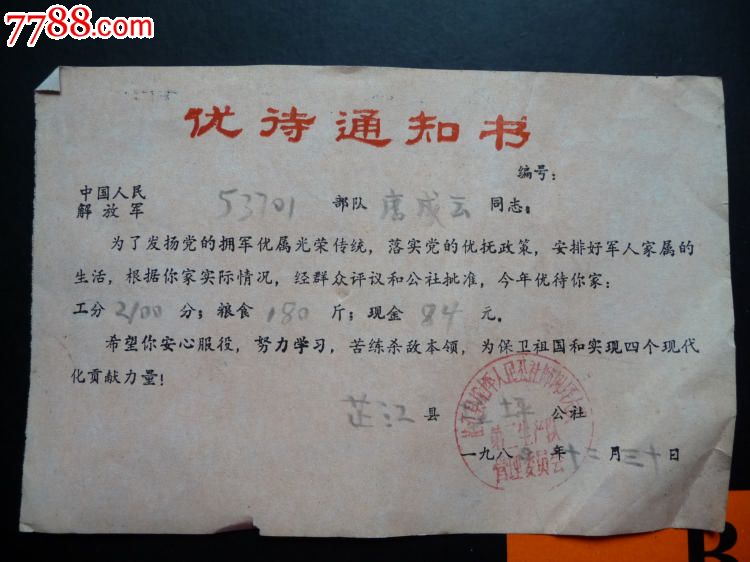 7788.com
优待通知书
编号：
中国人民
解放军 53701 部队 席成云 同志。
为了发扬党的拥军优属光荣传统，落实党的优抚政策，安排好军人家属的
生活，根据你家实际情况，经群众评议和公社批准，今年优待你家：
工分 2100 分；粮食 180 斤；现金 84 元。
希望你安心服役，努力学习，苦练杀敌本领，为保卫祖国和实现四个现代
化贡献力量！
芷江 县 坪 公社
一九八 年 十二 月 三十 日
第二生产队
管理委员会
B